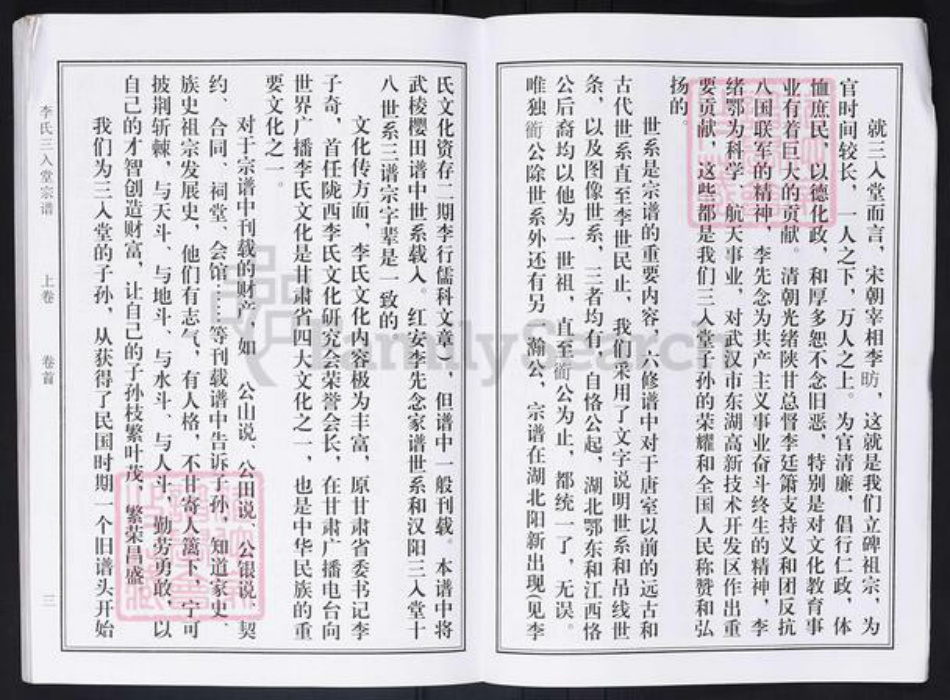 就三入堂而言，宋朝宰相李昉，这就是我们立碑祖宗，为
官时间较长，一人之下，万人之上。为官清廉，倡行仁政，体
恤庶民，以德化政，和厚多恕不念旧恶，特别是对文化教育事
业有着巨大的贡献。清朝光绪陕甘总督李廷箫支持义和团反抗
八国联军的精神，李先念为共产主义事业奋斗终生的精神，李
绪鄂为科学、航天事业，对武汉市东湖高新技术开发区作出重
要贡献，这些都是我们三入堂子孙的荣耀和全国人民称赞和弘
扬的。
世系是宗谱的重要内容，六修谱中对于唐室以前的远古和
古代世系直至李世民止，我们采用了文字说明世系和吊线世
条，以及图像世系，三者均有，自恪公起，湖北鄂东和江西恪
公后裔均以他为一世祖，直至衕公为止，都统一了，无误。
唯独衕公除世系外还有另 瀚公，宗谱在湖北阳新出现（见李
氏文化资存二期李行儒科文章），但谱中一般刊载。本谱中将
武棱樱田谱中世系载入。红安李先念家谱世系和汉阳三入堂十
八世系三谱宗字辈是一致的。
文化传方面，李氏文化内容极为丰富，原甘肃省委书记李
子奇，首任陇西李氏文化研究会荣誉会长，在甘肃广播电台向
世界广播李氏文化是甘肃省四大文化之一，也是中华民族的重
要文化之一。
对于宗谱中刊载的财产，如 公山说、公田说、公银说、契
约、合同、祠堂、会馆……等刊载谱中告诉子孙，知道家史、
族史祖宗发展史，他们有志气，有人格，不甘寄人篱下，宁可
披荆斩棘，与天斗、与地斗、与水斗、与人斗，勤劳勇敢，以
自己的才智创造财富，让自己的子孙枝繁叶茂，繁荣昌盛。
我们为三入堂的子孙，从获得了民国时期一个旧谱头开始
李氏三入堂宗谱 上卷 卷首 三
FamilySearch